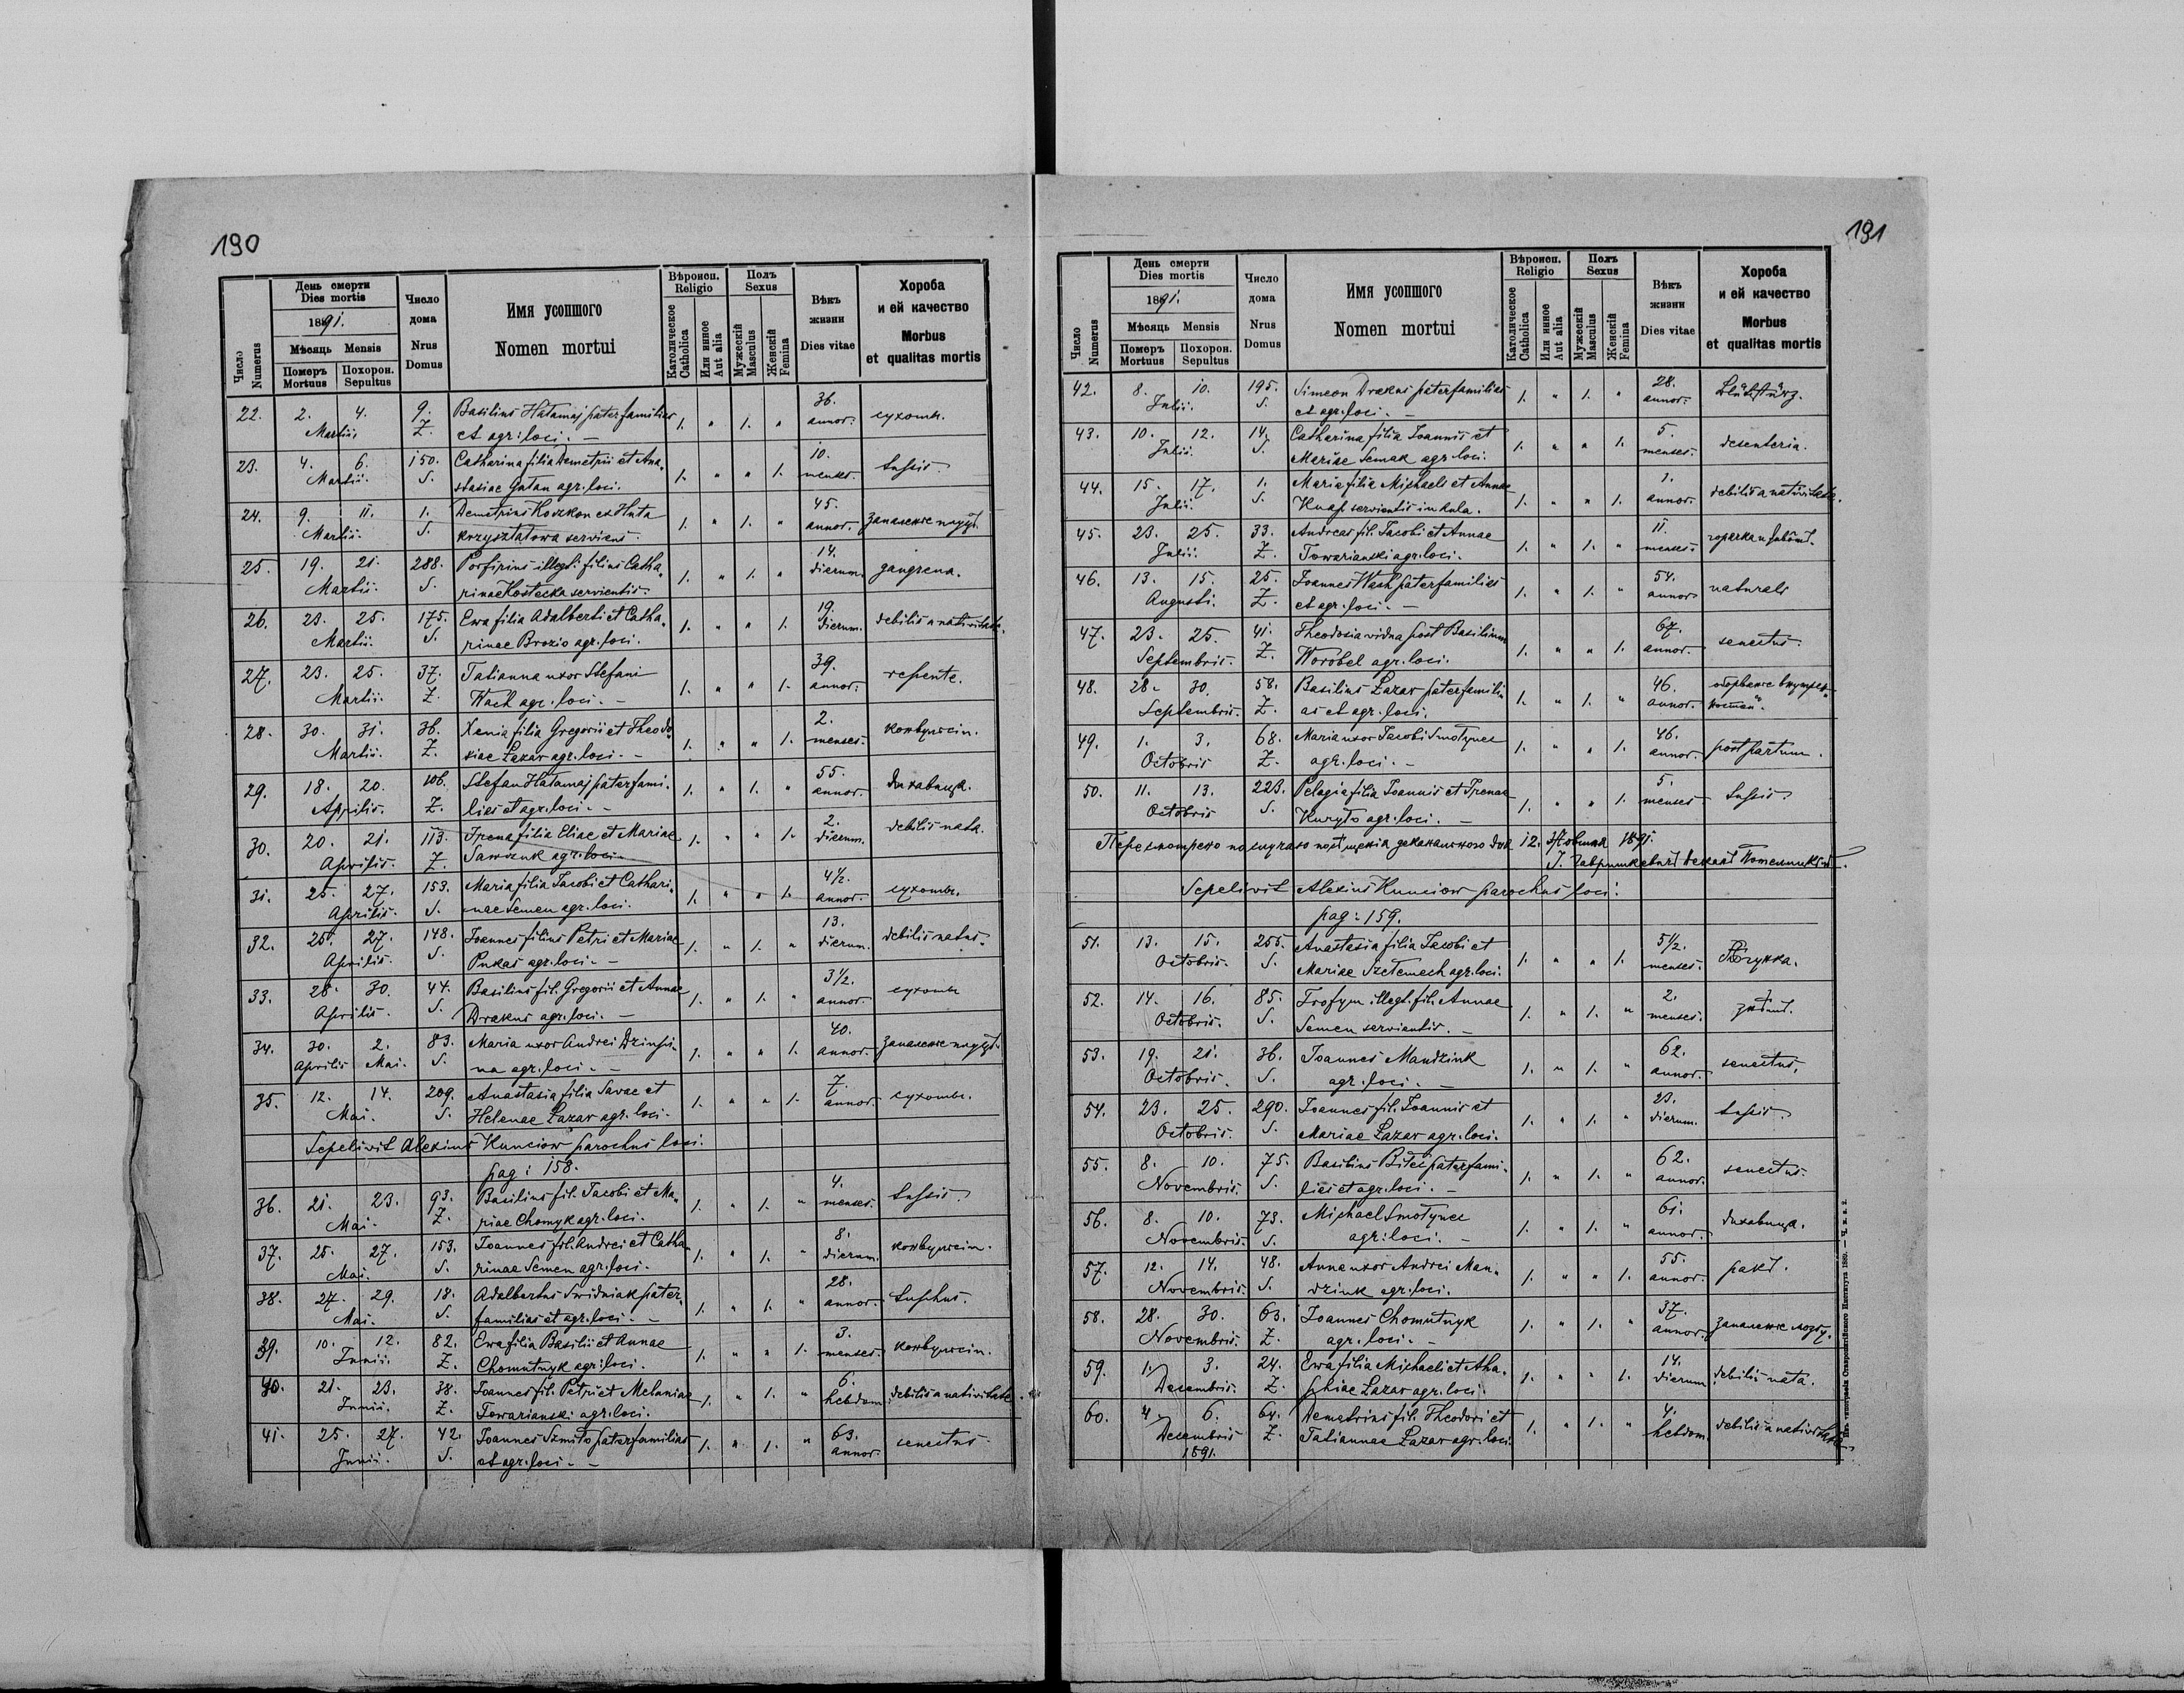 190
Число Numerus
День смерти Dies mortis
1891.
Мѣсяць Mensis
Померъ Mortuus
Похорон. Sepultus
Число дома Nrus Domus
Имя усопшого Nomen mortui
Вѣроисп. Religio
Католическое Catholica
Или инное Aut alia
Полъ Sexus
Мужескій Masculus
Женскій Femina
Вѣкъ жизни Dies vitae
Хороба и ей качество Morbus et qualitas mortis
22. 2. 4. 9. Basilius Hałamaj paterfamilias 1. " 1. " 36. сухоты.
Martii. Z. et agr: loci. — annor:
23. 4. 6. 150. Catharina filia Demetrii et Ana„ 1. " " 1. 10. tussis.
Martii. S. stasiae Gałan agr. loci. menses.
24. 9. 11. 1. Demetrius Koszkon ex Huta 1. " 1. " 45. запаленіе
Martii. S. krzyształowa serviens. annor.
25. 19. 21. 288. Porfirius illegt. filius Catha„ 1. " 1. " 14. gangrena.
Martii. S. rinae Kostecka servientis. dierum.
26. 23. 25. 175. Ewa filia Adalberti et Catha„ 1. " " 1. 19. debilis a nativitate.
Martii. S. rinae Brozio agr. loci. dierum.
27. 23. 25. 37. Tatianna uxor Stefani 1. " " 1. 39. repente.
Martii. Z. Wach agr. loci. — annor:
28. 30. 31. 36. Xenia filia Gregorii et Theodo„ 1. " " 1. 2. конвульсіи.
Martii. Z. siae Łazar agr. loci. — menses.
29. 18. 20. 106. Stefan Hałamaj paterfami„ 1. " 1. " 55. дихавиця.
Aprilis. Z. lias et agr. loci. — annor.
30. 20. 21. 113. Irena filia Eliae et Mariae 1. " " 1. 2. debilis nata.
Aprilis. Z. Sawczuk agr. loci. dierum.
31. 25. 27. 153. Maria filia Jacobi et Cathari„ 1. " " 1. 4½. сухоты.
Aprilis. S. nae Semen agr. loci. annor.
32. 25. 27. 148. Joannes filius Petri et Mariae 1. " 1. " 13. debilis natus.
Aprilis. S. Pukas agr. loci. — dierum.
33. 28. 30. 44. Basilius fil. Gregorii et Annae 1. " 1. " 3½. сухоты
Aprilis. S. Drakus agr. loci. — annor.
34. 30. 2. 83. Maria uxor Andrei Dziupi„ 1. " " 1. 40. запаленіе
Aprilis Mai. S. na agr. loci. — annor.
35. 12. 14. 209. Anastasia filia Savae et 1. " " 1. 7. сухоты.
Mai. S. Helenae Łazar agr. loci. annor.
Sepelivit Alexius Kunciow parochus loci.
pag: 158.
36. 21. 23. 93. Basilius fil. Jacobi et Ma„ 1. " 1. " 4. tussis.
Mai. Z. riae Chomyk agr. loci. menses.
37. 25. 27. 153. Joannes fil. Andrei et Catha„ 1. " 1. " 8. конвульсіи.
Mai. S. rinae Semen agr. loci. dierum.
38. 27. 29. 18. Adalbertus Swidniak pater„ 1. " 1. " 28. tuphus.
Mai. S. familias et agr. loci. — annor.
39. 10. 12. 82. Ewa filia Basilii et Annae 1. " " 1. 3. конвульсіи.
Junii. Z. Chomutnyk agr: loci. menses.
40. 21. 23. 38. Joannes fil. Petri et Melaniae 1. " 1. " 6. debilis a nativitate.
Junii. Z. Towarianski agr. loci. hebdom.
41. 25. 27. 42. Joannes Szmiło paterfamilias 1. " 1. " 63. senectus.
Junii. S. et agr. loci. — annor.
191
Число Numerus
День смерти Dies mortis
1891.
Мѣсяць Mensis
Померъ Mortuus
Похорон. Sepultus
Число дома Nrus Domus
Имя усопшого Nomen mortui
Вѣроисп. Religio
Католическое Catholica
Или инное Aut alia
Полъ Sexus
Мужескій Masculus
Женскій Femina
Вѣкъ жизни Dies vitae
Хороба и ей качество Morbus et qualitas mortis
42. 8. 10. 195. Simeon Drakus paterfamilias 1. " 1. " 28. Blutsturz.
Julii. S. et agr. loci. — annor:
43. 10. 12. 14. Catharina filia Joannis et 1. " " 1. 5. desenteria.
Julii. S. Mariae Semak agr. loci. menses.
44. 15. 17. 1. Maria filia Michaeli et Annae 1. " " 1. 1. debilis a nativitate.
Julii. S. Knap servientis in kula. annor.
45. 23. 25. 33. Andreas fil. Jacobi et Annae 1. " 1. " 11. горячка
Julii. Z. Towarianski agr. loci. menses.
46. 13. 15. 25. Joannes Wach paterfamilias 1. " 1. " 54. naturals
Augusti. Z. et agr. loci. — annor.
47. 23. 25. 41. Theodosia vidua post Basilium 1. " " 1. 67. senectus.
Septembris. Z. Worobel agr. loci. annor.
48. 28. 30. 58. Basilius Łazar paterfamili„ 1. " 1. " 46. обо
Septembris. Z. as et agr. loci. annor.
49. 1. 3. 68. Maria uxor Jacobi Smotynec 1. " " 1. 46. post partum.
Octobris Z. agr. loci. — annor.
50. 11. 13. 223. Pelagia filia Joannis et Irenae 1. " " 1. 5. tussis.
Octobris S. Kuryło agr. loci. — menses
Пересмотрено по случаю деканального дня 12. Жовтня 1891.
І. Гавришкевичъ Деканъ
Sepelivit Alexius Kunciow parochus loci.
pag: 159.
51. 13. 15. 255. Anastasia filia Jacobi et 1. " " 1. 5½.
Octobris. S. Mariae Szełemech agr. loci. menses.
52. 14. 16. 85. Trofym illegt. fil. Annae 1. " 1. " 2.
Octobris. S. Semen servientis. — menses.
53. 19. 21. 36. Joannes Mandziuk 1. " 1. " 62. senectus.
Octobris. S. agr. loci. — annor.
54. 23. 25. 290. Joannes fil. Joannis et 1. " 1. " 23. tussis.
Octobris. S. Mariae Łazar agr. loci. dierum.
55. 8. 10. 75. Basilius Biłeć paterfami„ 1. " 1. " 62. senectus.
Novembris. S. lias et agr. loci. — annor.
56. 8. 10. 73. Michael Smotynec 1. " 1. " 61. дихавиця.
Novembris. S. agr: loci. — annor.
57. 12. 14. 48. Anna uxor Andrei Man„ 1. " " 1. 55. ракъ.
Novembris. S. dziuk agr. loci. annor.
58. 28. 30. 63. Joannes Chomutnyk 1. " 1. " 37. запаленіе мозгу.
Novembris. Z. agr. loci. — annor.
59. 1. 3. 24. Ewa filia Michaeli et Aha„ 1. " " 1. 14. debilis nata.
Decembris. Z. phiae Łazar agr. loci. dierum
60. 4. 6. 64. Demetrius fil. Theodori et 1. " 1. " 4. debilis a nativitate
Decembris Z. Tatiannae Łazar agr. loci. hebdom
1891.
Изъ типографіи Ставропигійского Института 1880. — Ч.